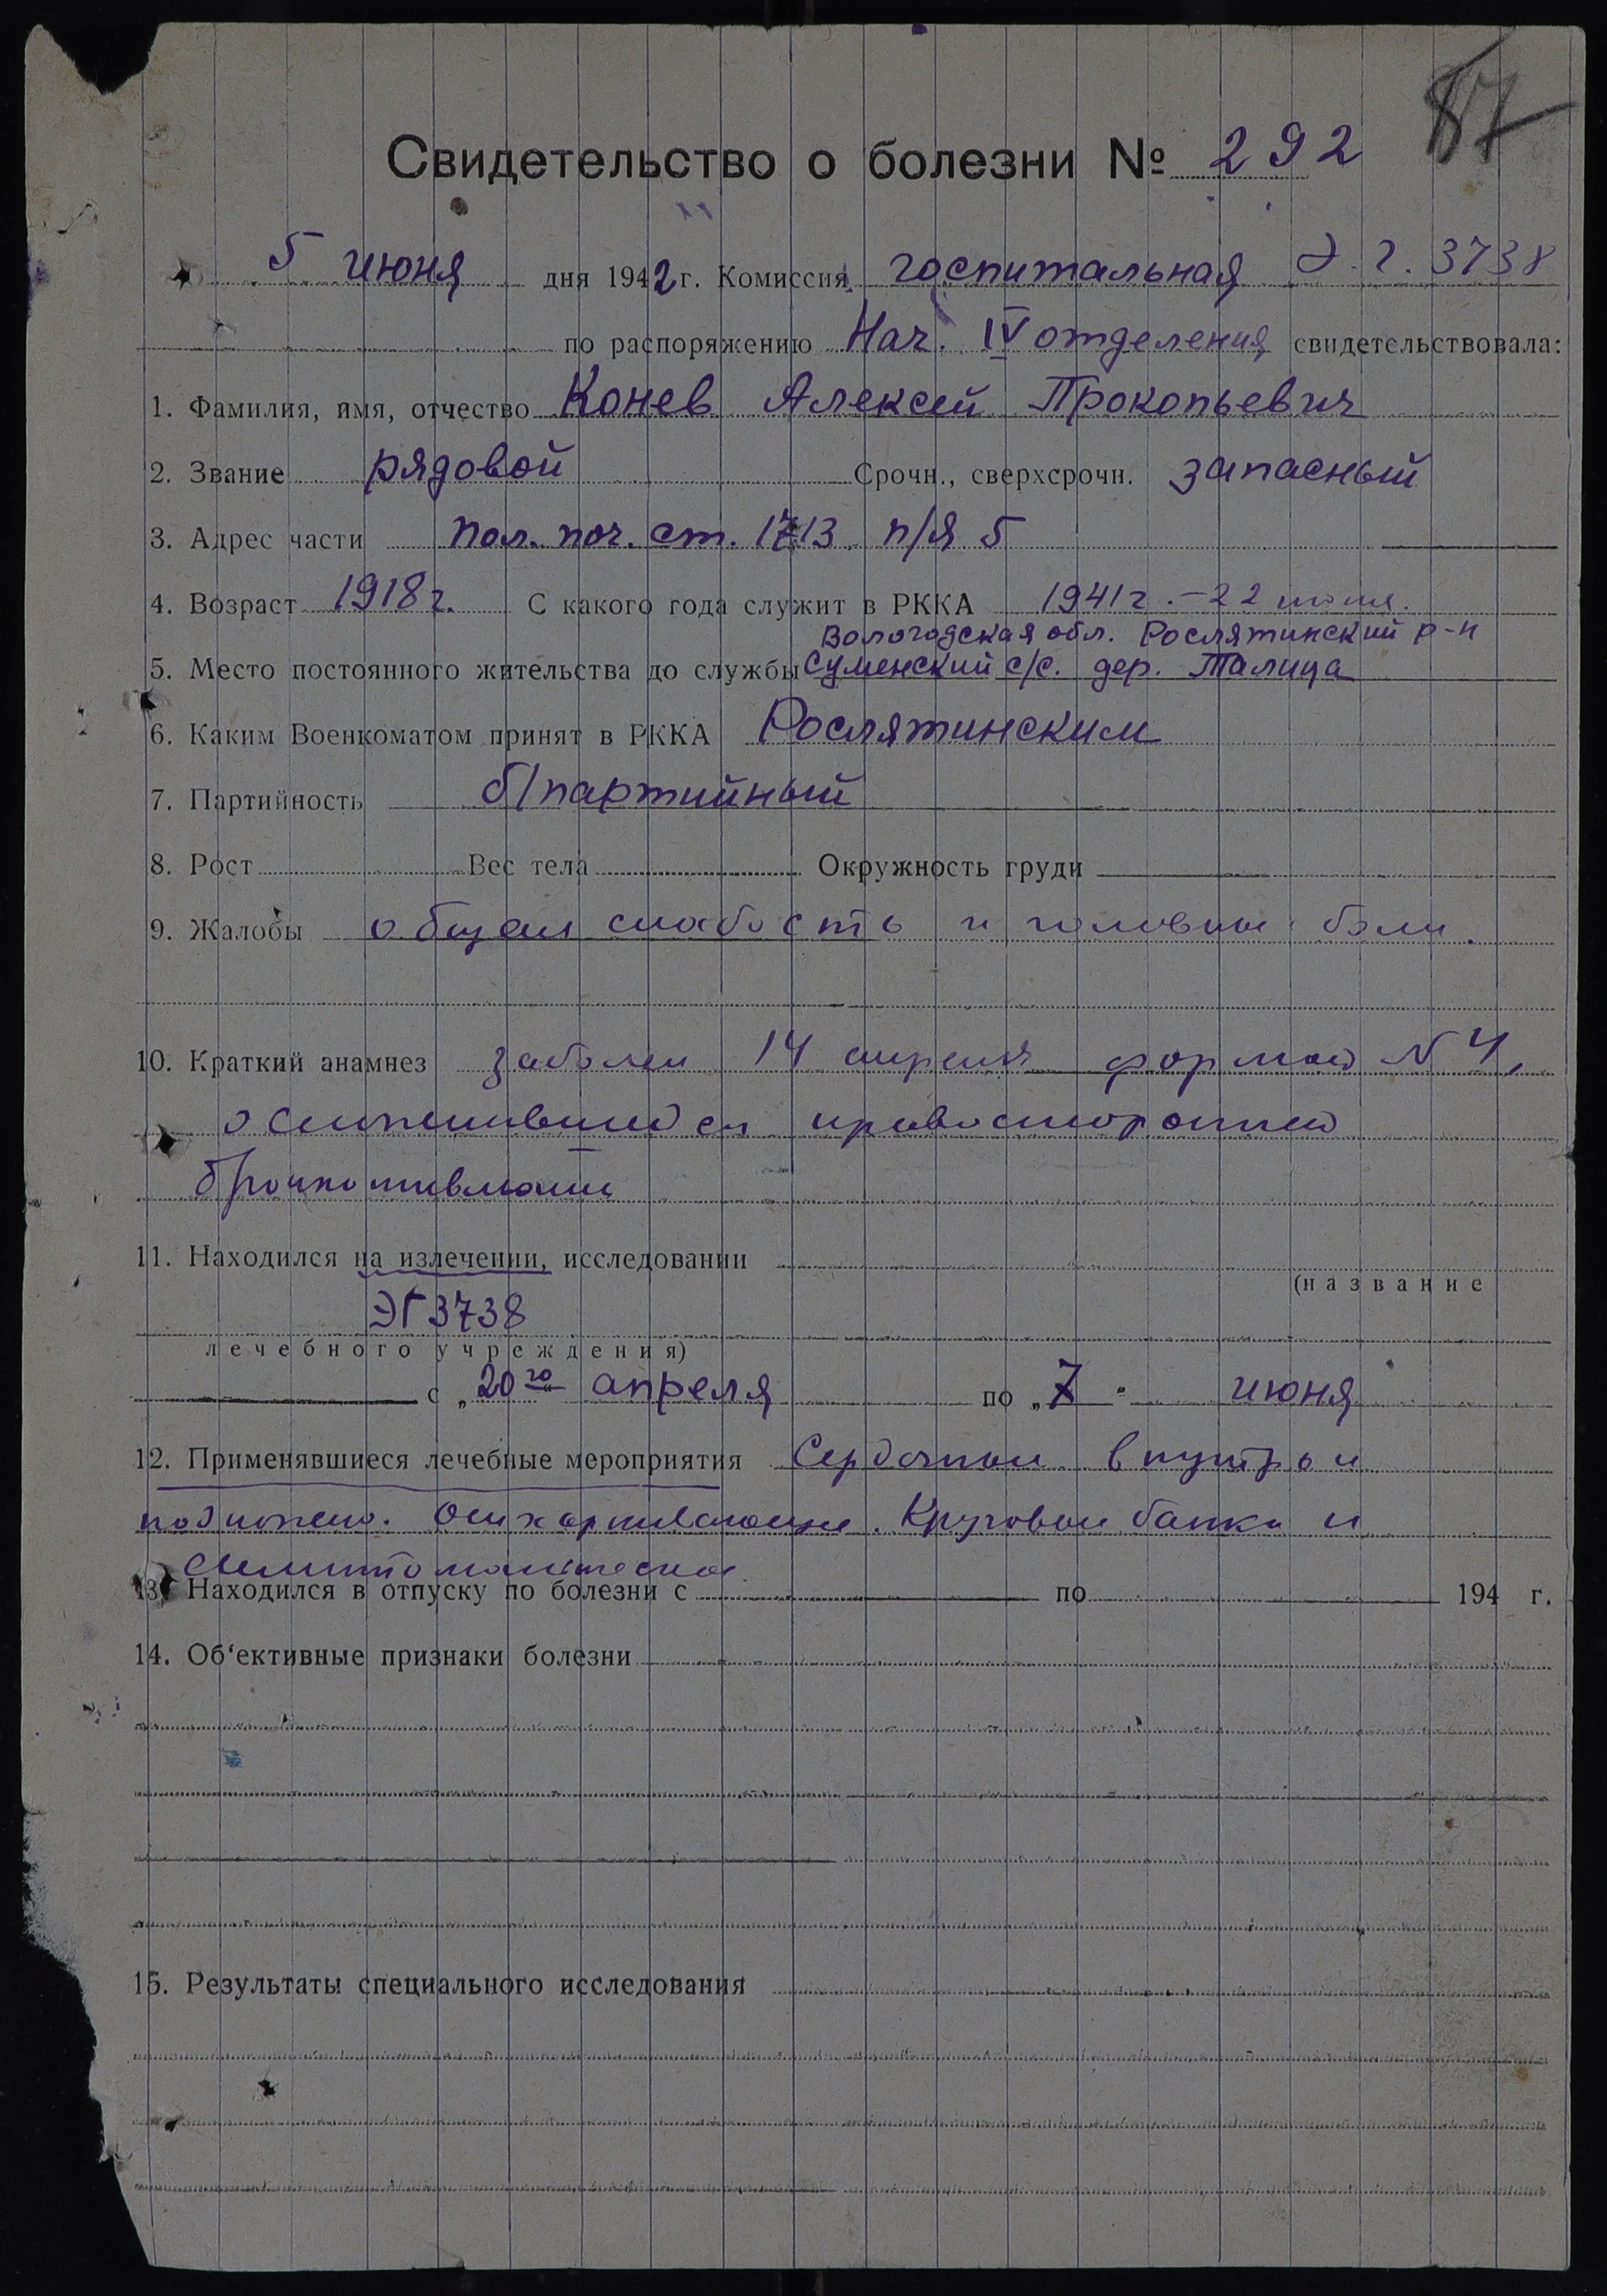 87
Свидетельство о болезни № 292
5 июня дня 1942 г. Комиссия госпитальная Э. Г. 3738
по распоряжению Нач. IV отделения свидетельствовала:
1. Фамилия, имя, отчество Конев Алексей Прокопьевич
2. Звание рядовой Срочн., сверхсрочн. запасный
3. Адрес части пол. поч. ст. 1713 п/я 5
4. Возраст 1918 г. С какого года служит в РККА 1941 г. – 22
Вологодская обл. Рослятинский р-н
5. Место постоянного жительства до службы Суменский с/с. дер. Талица
6. Каким Военкоматом принят в РККА Рослятинским
7. Партийность б/партийный
8. Рост Вес тела Окружность груди
9. Жалобы общая слабость и головные боли.
10. Краткий анамнез заболел 14 апреля формой N 4,
осложнившейся правосторонней
бронхопневмонией
11. Находился на излечении, исследовании
(название
ЭГ 3738
лечебного учреждения)
с „20го" апреля по „7" июня
12. Применявшиеся лечебные мероприятия Сердечные внутрь и
подкожно. Отхаркивающие. Круговые банки и
симптоматическое.
13. Находился в отпуску по болезни с по 194 г.
14. Об‘ективные признаки болезни
15. Результаты специального исследования